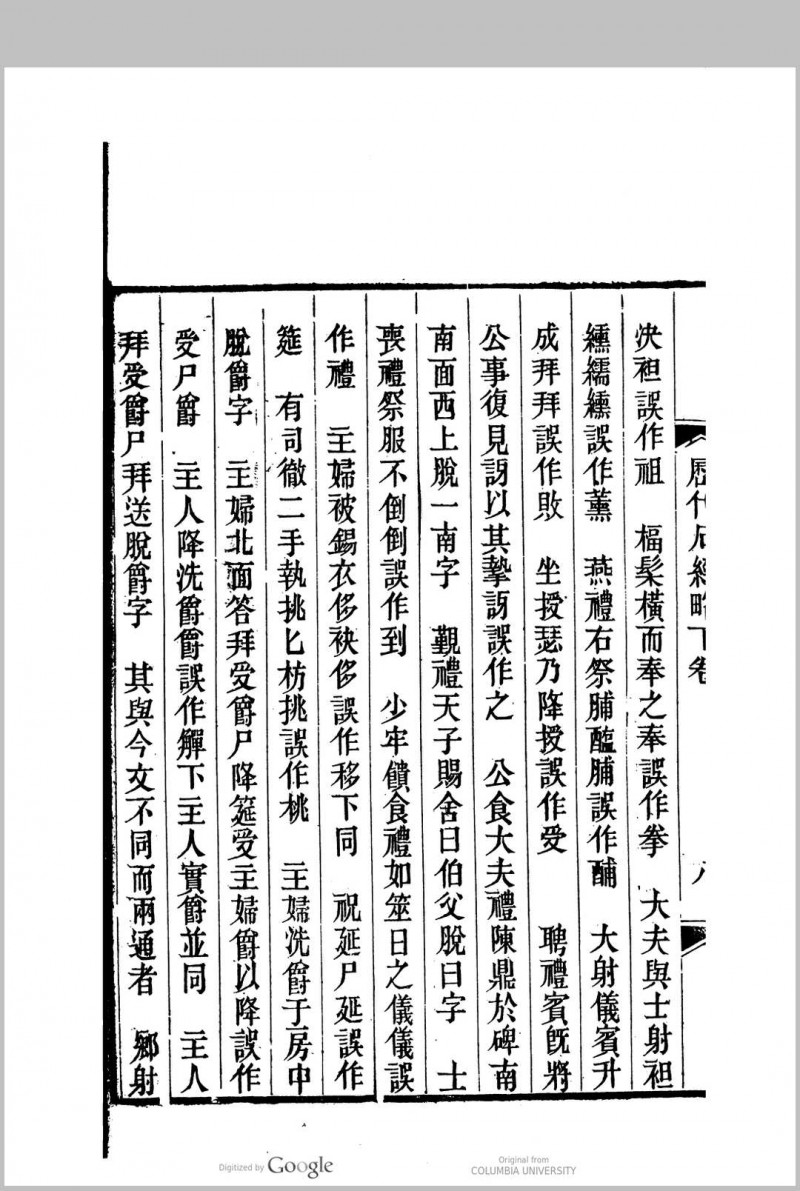 歷代石經略下卷 八
決袒誤作祖　楅髤橫而奉之奉誤作拳　大夫與士射袒
纁繻纁誤作薰　燕禮右祭脯醢脯誤作酺　大射儀賓升
成拜拜誤作敗　坐授瑟乃降授誤作受　聘禮賓旣將
公事復見訝以其摯訝誤作之　公食大夫禮陳鼎於碑南
南面西上脫一南字　覲禮天子賜舍曰伯父脫曰字　士
喪禮祭服不倒倒誤作到　少牢饋食禮如筮日之儀儀誤
作禮　主婦被錫衣侈袂侈誤作移下同　祝延尸延誤作
筵　有司徹二手執挑匕枋挑誤作桃　主婦洗爵于房中
脫爵字　主婦北面答拜受爵尸降筵受主婦爵以降誤作
受尸爵　主人降洗爵爵誤作觶下主人實爵並同　主人
拜受爵尸拜送脫爵字　其與今文不同而兩通者　鄉射
Digitized by Google
Original from
COLUMBIA UNIVERSITY